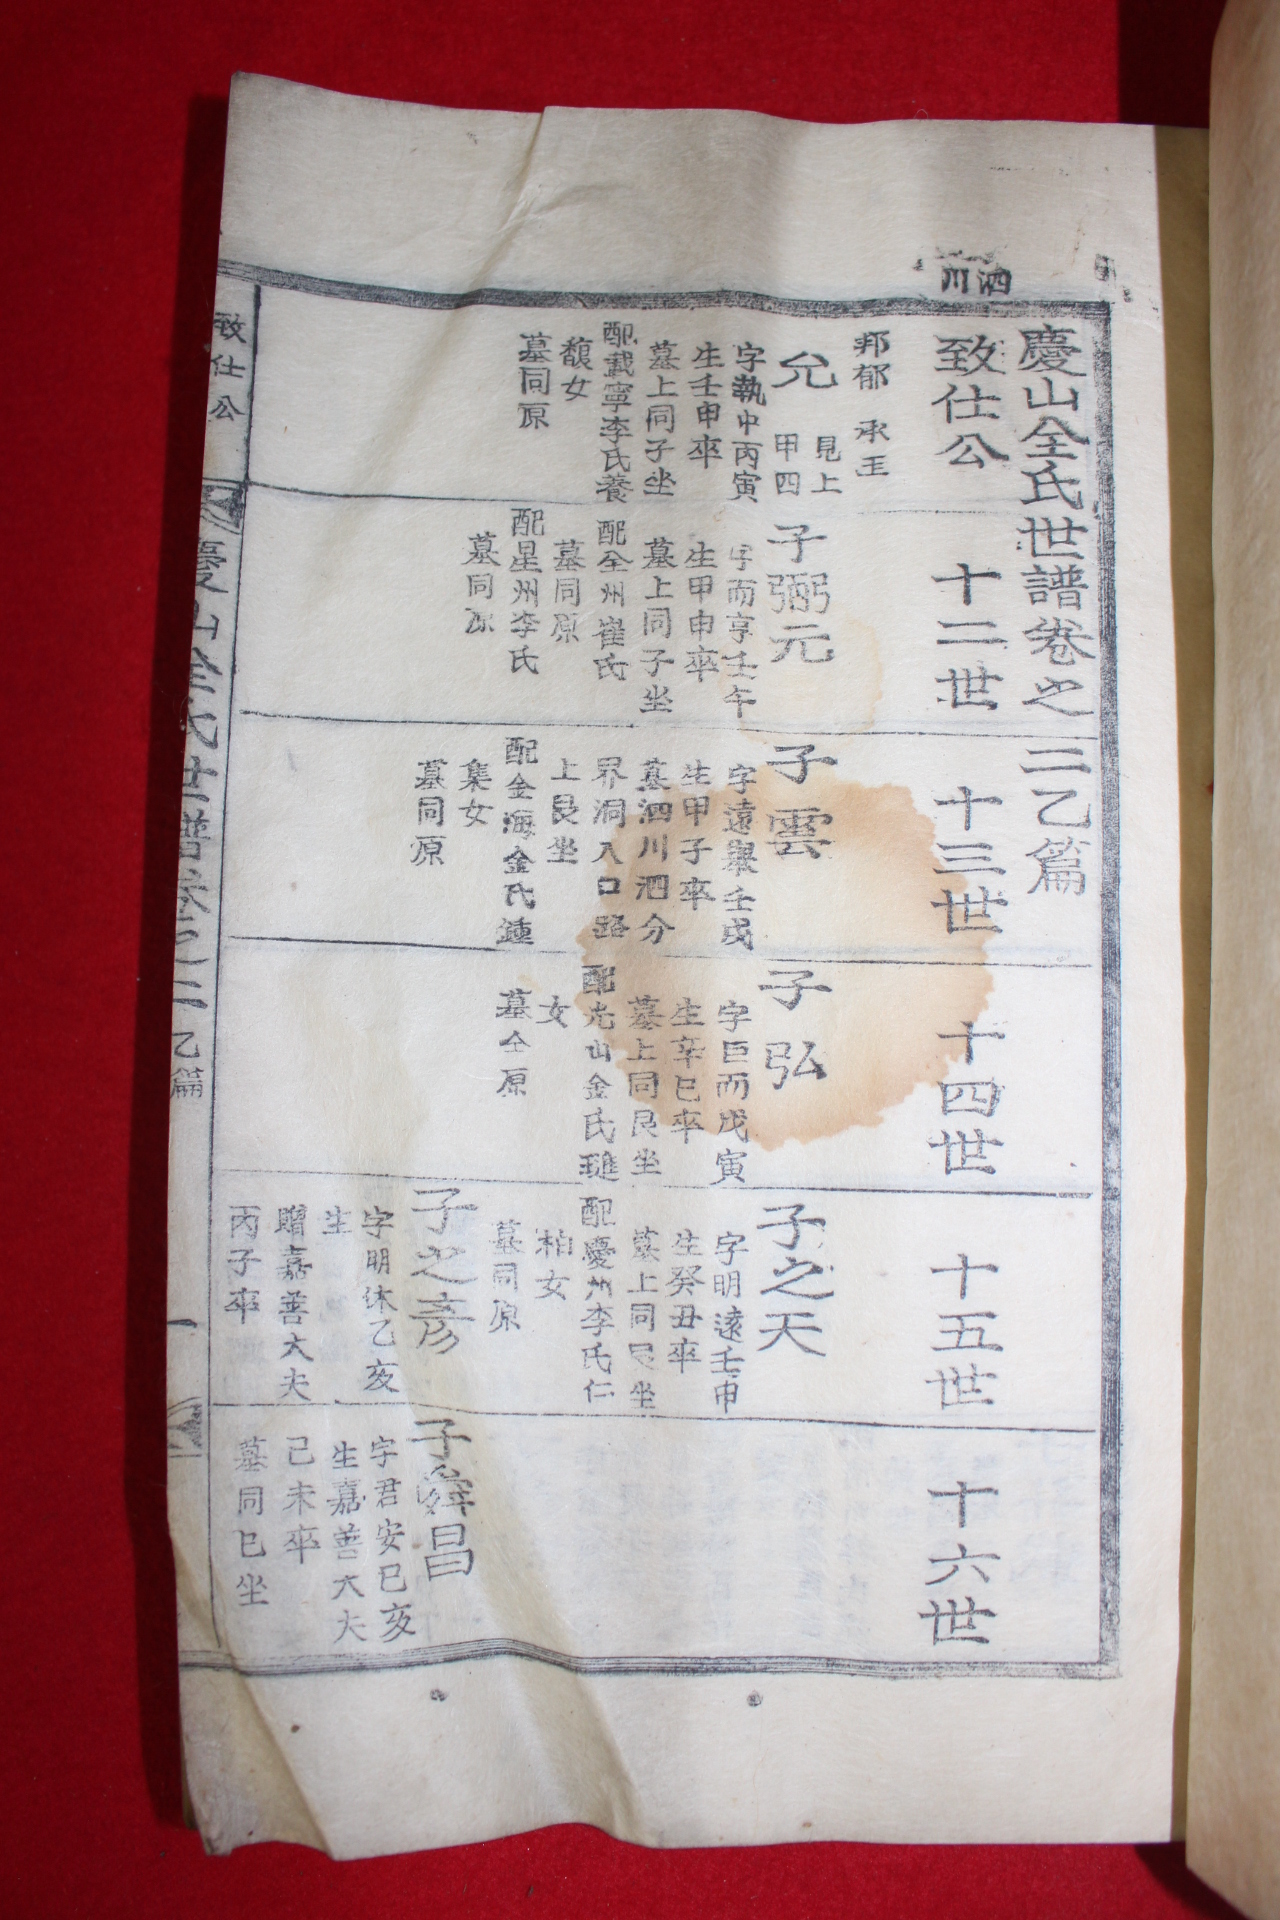 泗川
慶山全氏世譜卷之二乙篇
致仕公
十二世
十三世
十四世
十五世
十六世
邦郁 承王
允 見上
甲四
字執中丙寅
生壬申卒
墓上同子坐
配載寧李氏養
馥女
墓同原
子弼元
字而亨壬午
生甲申卒
墓上同子坐
配全州崔氏
墓同原
配星州李氏
墓同原
子雲
字遠舉壬戌
生甲子卒
墓泗川泗分
界洞入口路
上艮坐
配金海金氏鍾
集女
墓同原
子弘
字巨而戊寅
生辛巳卒
墓上同艮坐
配光山金氏璡
女
墓仝原
子之天
字明遠壬申
生癸丑卒
墓上同艮坐
配慶州李氏仁
柏女
墓同原
子之彦
字明休乙亥
生
贈嘉善大夫
丙子卒
子舜昌
字君安巳亥
生嘉善大夫
己未卒
墓同巳坐
致仕公
慶山全氏世譜卷之二 乙篇
一